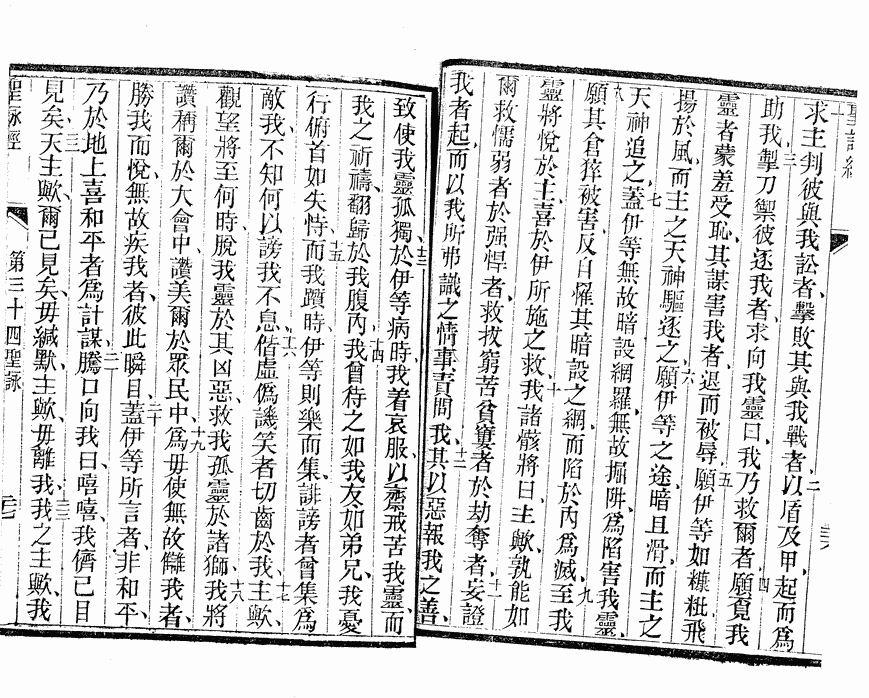 聖詠經
三六
求主判彼與我訟者、擊敗其與我戰者、二以盾及甲、起而爲
助我、三掣刀禦彼逐我者、求向我靈曰、我乃救爾者、四願覓我
靈者蒙羞受恥、其謀害我者、退而被辱、五願伊等如糠粃飛
揚於風、而主之天神驅逐之、六願伊等之途暗且滑、而主之
天神追之、七蓋伊等無故暗設網羅、無故掘阱、爲陷害我靈、
八願其倉猝被害、反自罹其暗設之網、而陷於內爲滅、九至我
靈將悅於主、喜於伊所施之救、十我諸骸將曰、主歟、孰能如
爾救懦弱者於强悍者、救拔窮苦貧寠者於劫奪者、十一妄證
我者起、而以我所弗識之情事責問我、十二其以惡報我之善、
致使我靈孤獨、十三於伊等病時、我着哀服、以齋戒苦我靈、而
我之祈禱、翻歸於我腹內、十四我曾待之如我友、如弟兄、我憂
行俯首如失恃、十五而我躓時、伊等則樂而集、誹謗者曾集爲
敵我、不知何以謗我不息、十六偕虛僞譏笑者切齒於我、十七主歟、
觀望將至何時、脫我靈於其凶惡、救我孤靈於諸獅、十八我將
讚稱爾於大會中、讚美爾於眾民中、十九爲毋使無故讎我者、
勝我而悅、無故疾我者、彼此瞬目、二十蓋伊等所言者、非和平、
乃於地上喜和平者爲計謀、二一騰口向我曰、嘻嘻、我儕已目
見矣、二二天主歟、爾已見矣、毋緘默、主歟、毋離我、二三我之主歟、我
聖詠經
第三十四聖詠